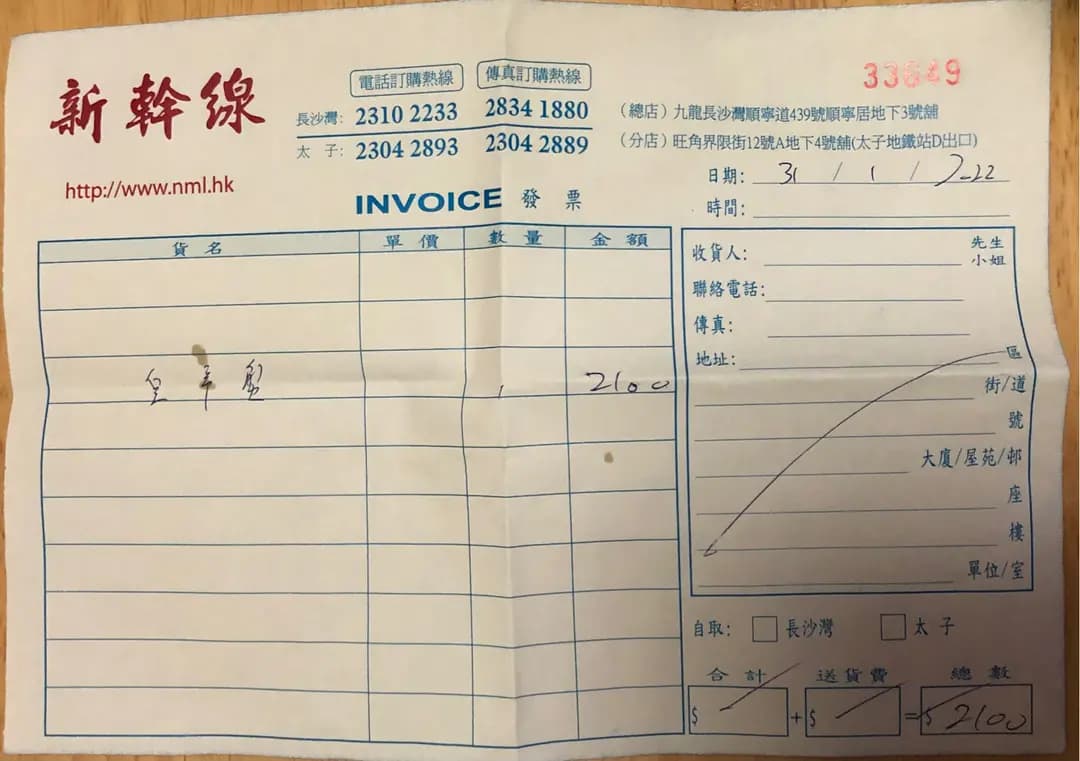 新幹線
http://www.nml.hk
電話訂購熱線 傳真訂購熱線
長沙灣: 2310 2233 2834 1880
太子: 2304 2893 2304 2889
33649
(總店) 九龍長沙灣順寧道439號順寧居地下3號舖
(分店) 旺角界限街12號A地下4號舖(太子地鐵站D出口)
INVOICE 發票
日期: 31 / 1 / 2022
時間:
貨名 單價 數量 金額
皇 年 1 2100
收貨人: 先生
小姐
聯絡電話:
傳真:
地址: 區
街/道
號
大廈/屋苑/邨
座
樓
單位/室
自取: 長沙灣 太子
合計 送貨費 總數
$ + $ = $ 2100